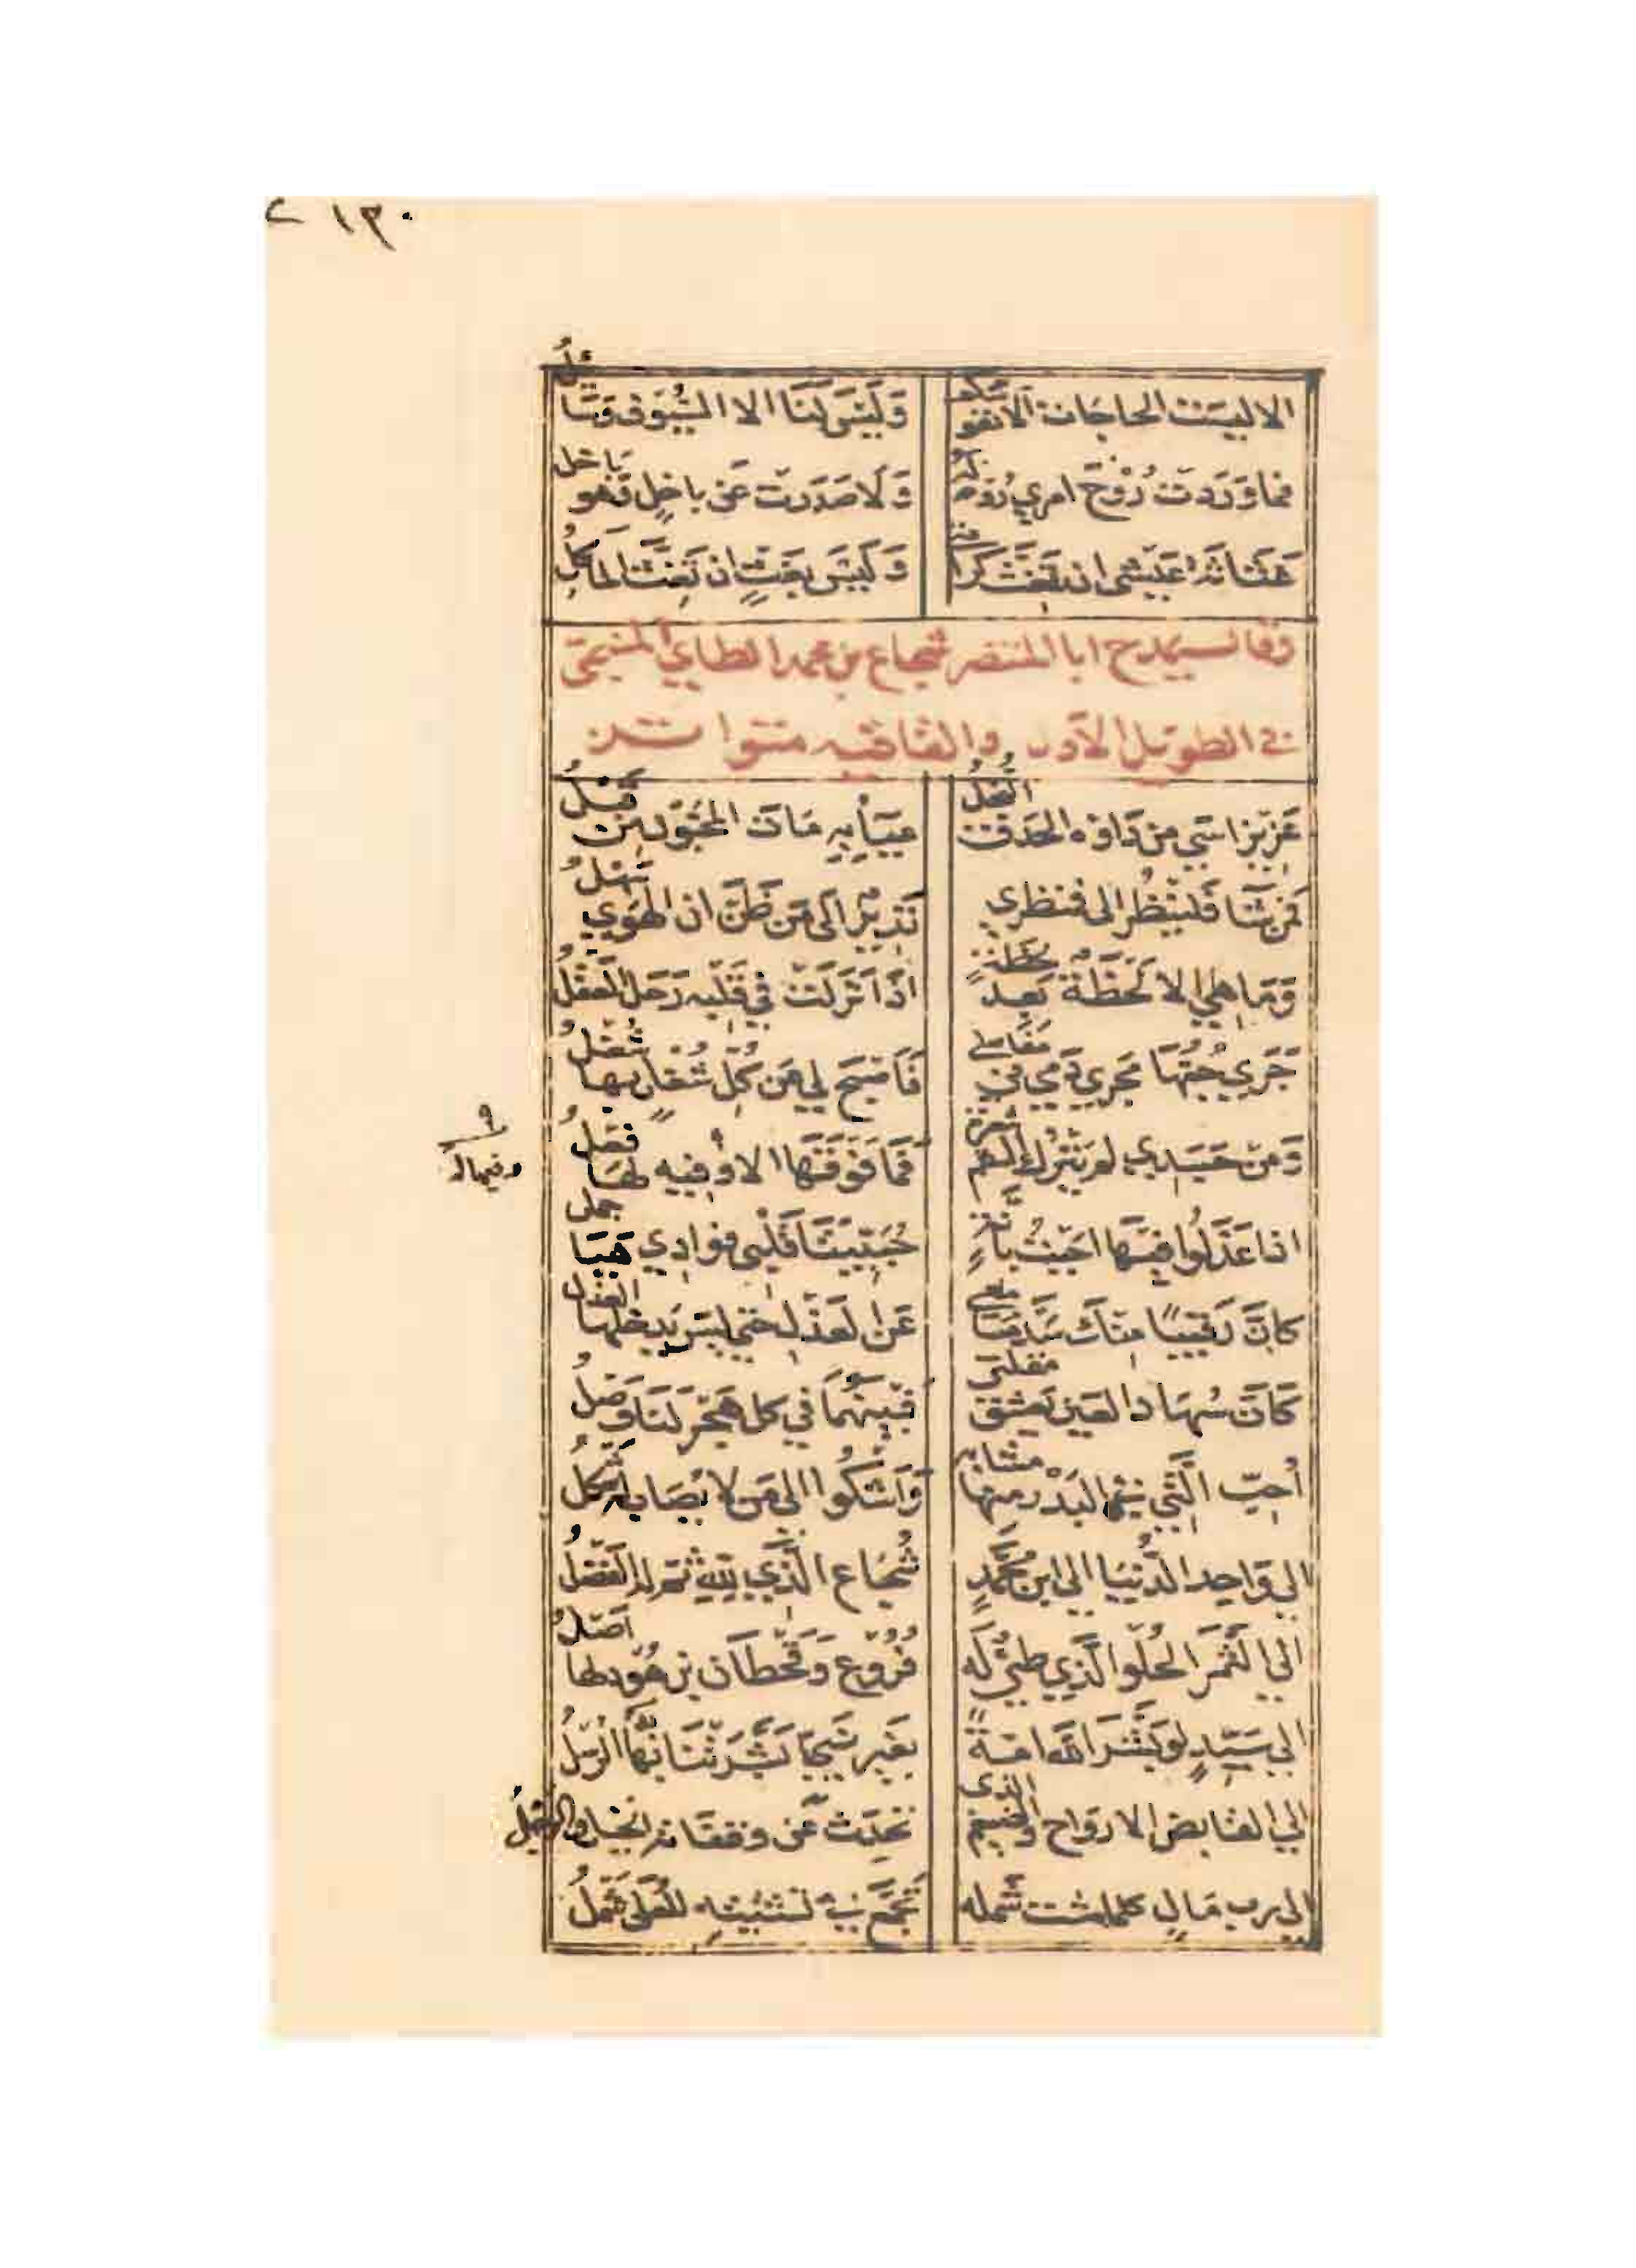 ١٣٠
الا ليست الحاجات الا نفوسكم وَلَيسَ لَنَا الا السُّيُوف وَسَائلُ
فما وَرَدَت رُوْحَ امري رُوحهُ لهُ وَلَا صَدَرت عَن باخِلٍ وَهو باخل
غثاثة عَيشى ان تَغثَّ كرامتي وَلَيسَ بغَثٍّ ان تَغِثَّ المآكلُ
وقال يمدح ابا المنتصر شجاع بن محمد الطايي المنبجي
في الطويل الاول والقافيه متواتر
عَزِيزاسَي من دَاوه الحدَق النُّجلُ عيَآ بِهِ مَاتَ المحبّونَ مِن قَبلُ
فمَن شَآ فَلينظُر الى فمنظري نَذِيرٌ الَى مَن ظَنَّ ان الهَوَي سَهلُ
وَمَا هِي الا لَحظَةٌ بَعدَ لحظةٍ اذَا نَزَلَت في قَلبِه رَحَل العَقلُ
جَرَي حُبّهَا مَجري دَمي في مَفَاصلي فَاصبَحَ لي عَن كُلّ شُغلٍ بها شُغلُ
وَمن جَسَدي لم يَترُك السقم شعرة فَمَا فَوقَهَا الا وَفيه لهَا فعلُ
٩
وفيما له
اذا عَذَلُوا فيهَا اجَبتُ بانّةٍ حُبَيّبَتَا قَلْبي فوادِي هيَا جمل
كانَّ رَقيبًا منكَ سَدَّ مَسَامعي عَن العَذلِ حتى ليسَ يَدخلها العذل
كَانَّ سُهَادَ العَين يَعشق مقلتي فبَينهُمَا في كل هَجرٍ لنَا وَصلُ
أحِبّ الَّتي في البَدْر منها مشابه وَاشكُوا الى مَن لا يُصَاب له شكلُ
الى وَاحِد الدُّنيا الى ابن مُحَمَّدٍ شُجَاع الَّذي للهِ ثم له الفَضلُ
الى الثَّمَر الحُلو الَّذي طيّ لَه فُرُوع وَقَحطَان بن هُود لها اَصْلُ
الى سَيّدٍ لو بَشَّرَ الله امةً بغَير نَبيٍّ بَشَّرَتنَا بهِ الرُّسلُ
الى القابض الارواح والضيغم الذى تحَدّث عَن وقفاته الخيل والرَّجلُ
الى رب مَالٍ كلما شت شَمله تجَمَّعَ في تشتيتِه للعُلَى شَملُ